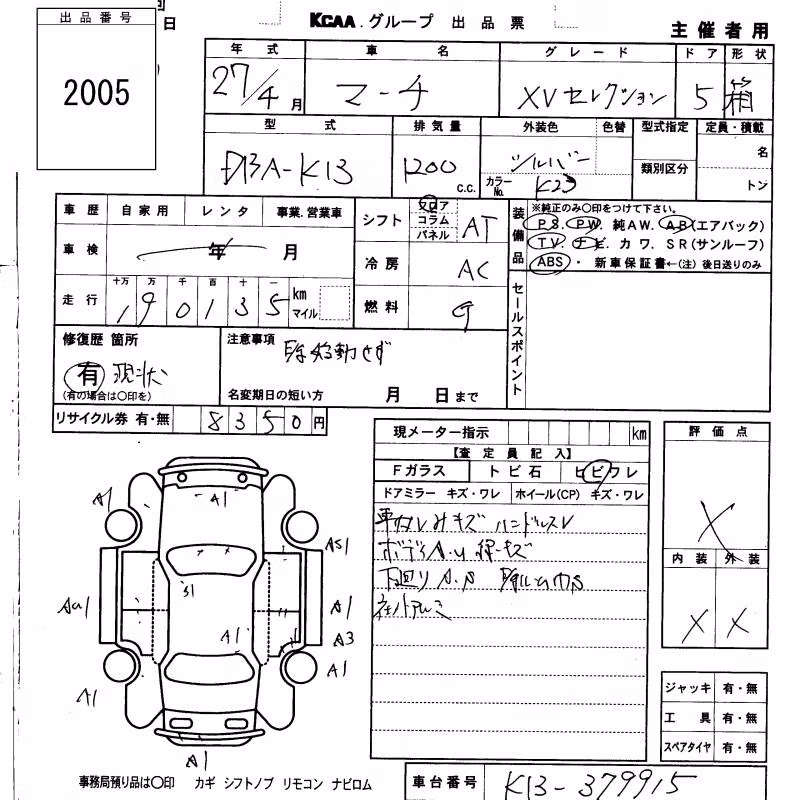 出品番号
2005
日
KCAA.グループ 出品票
主催者用
年式 車名 グレード ドア 形状
27/4月 マーチ XVセレクション 5 箱
型式 排気量 外装色 色替 型式指定 定員・積載
DBA-K13 1200 c.c. シルバー 名
カラーNo. K23 類別区分 トン
車歴 自家用 レンタ 事業.営業車
シフト フロア コラム パネル AT
装備品
※純正のみ〇印をつけて下さい。
PS. PW. 純AW. AB(エアバック)
TV. ナビ カワ. SR(サンルーフ)
ABS・ 新車保証書←(注)後日送りのみ
車検 年 月
冷房 AC
走行 十万 万 千 百 十 一 km マイル
1 9 0 1 3 5
燃料 G
セールスポイント
修復歴 箇所
有 現状
(有の場合は〇印を)
注意事項
移動せず
名変期日の短い方 月 日まで
リサイクル券 有・無 8350円
現メーター指示 km
評価点
【査定員記入】
Fガラス トビ石 ヒビワレ
ドアミラー キズ・ワレ ホイール(CP) キズ・ワレ
キズ ハンドルスレ
ボデー
下回り
社外アルミ
X
内装 外装
X X
A1
A1
A51
S1
AU1
A1
A1
A3
A1
A1
A1
ジャッキ 有・無
工具 有・無
スペアタイヤ 有・無
事務局預り品は〇印 カギ シフトノブ リモコン ナビロム
車台番号 K13-379915